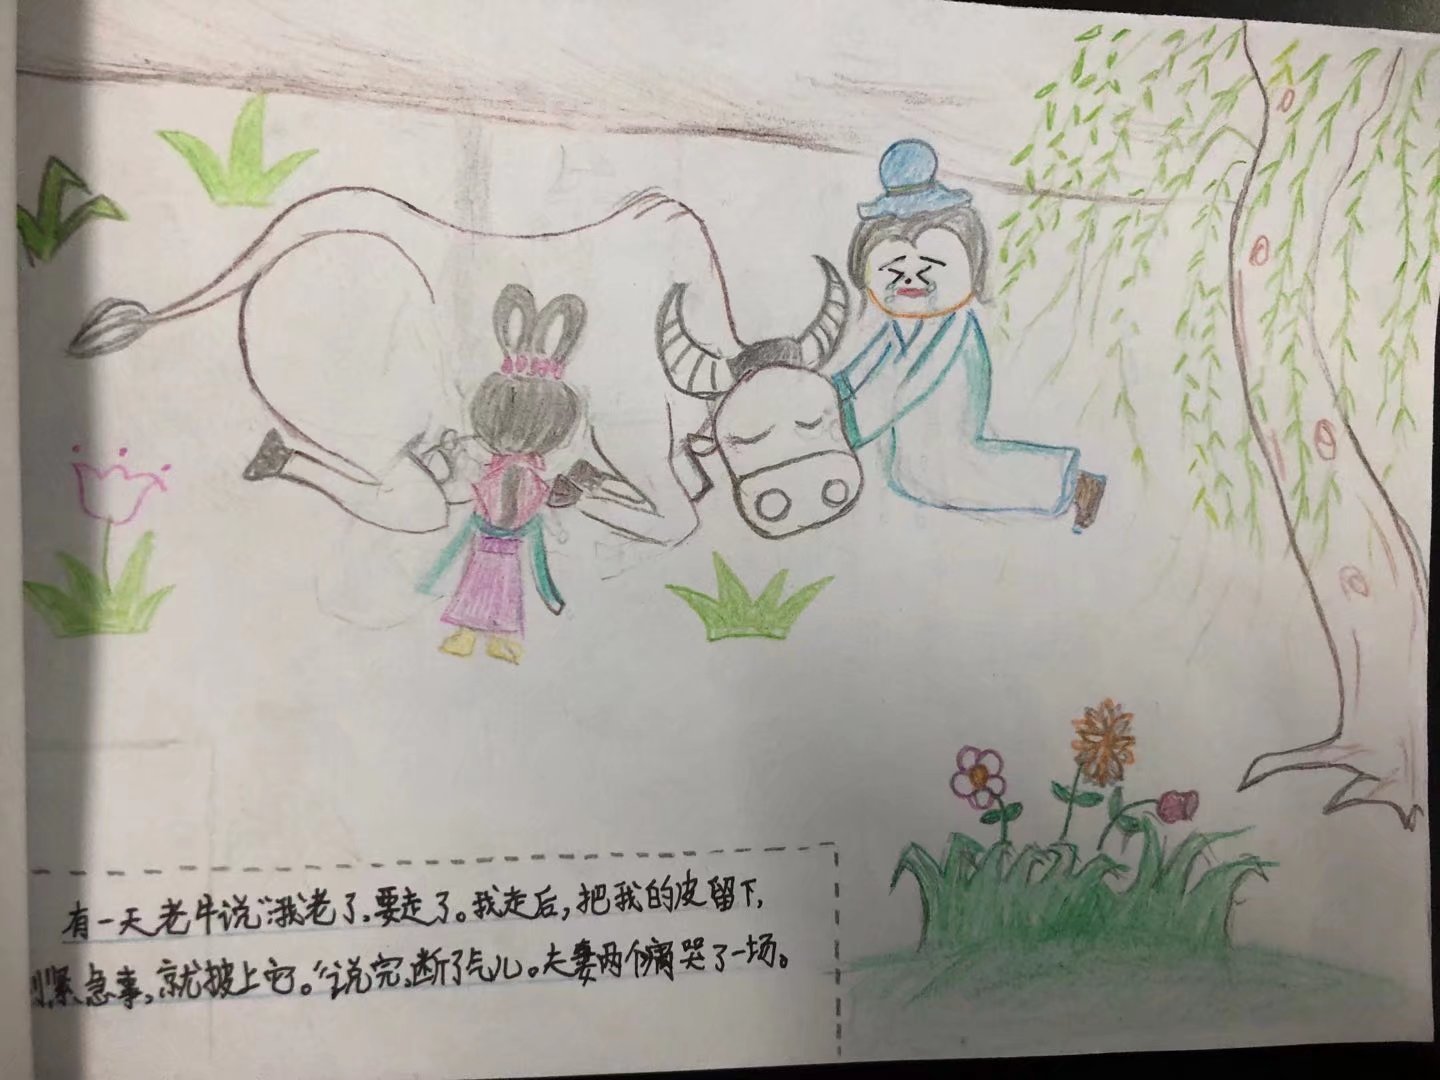 有一天老牛说:“我老了,要走了。我走后,把我的皮留下,
紧急事,就披上它。“说完,断了气儿。夫妻两个痛哭了一场。